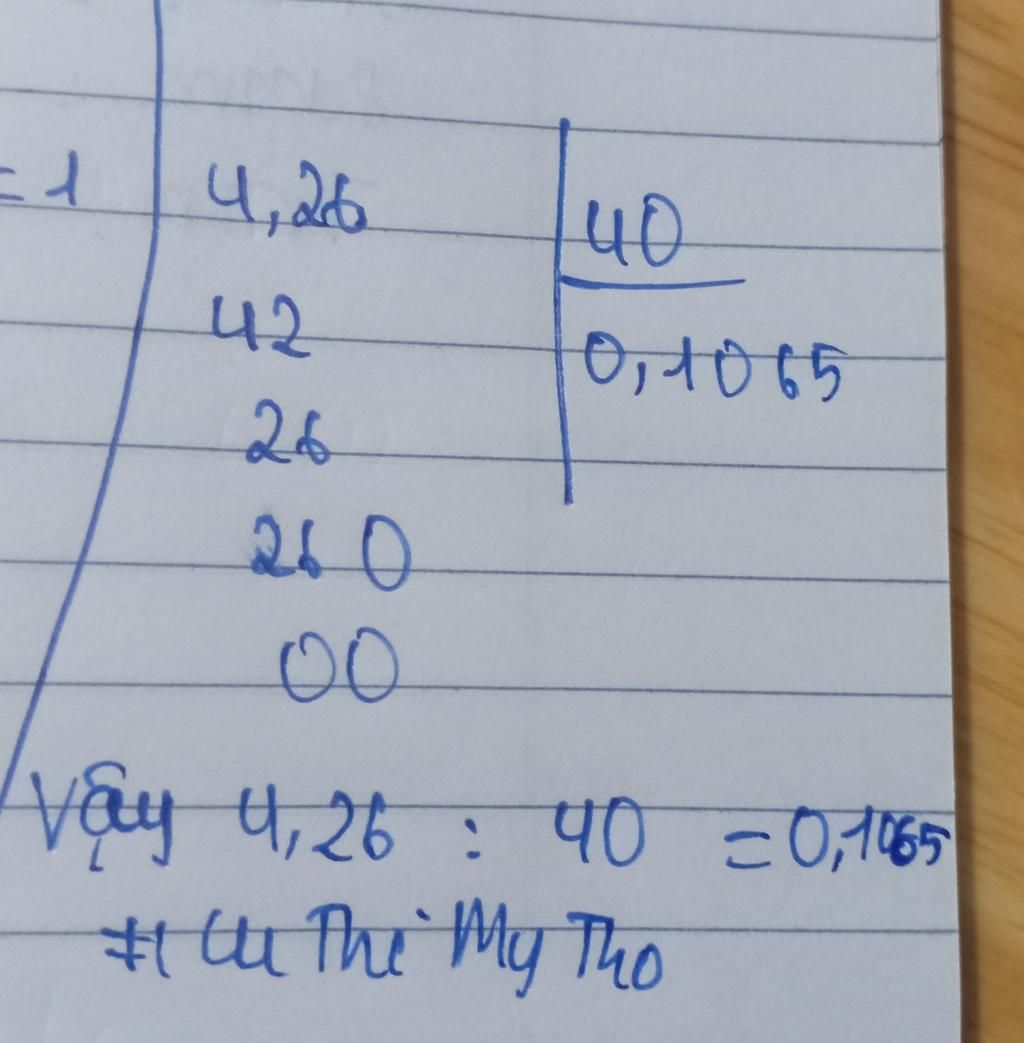 = 1
4,26 40
42 0,1065
26
260
00
Vậy 4,26 : 40 = 0,1065
Thi My Tho